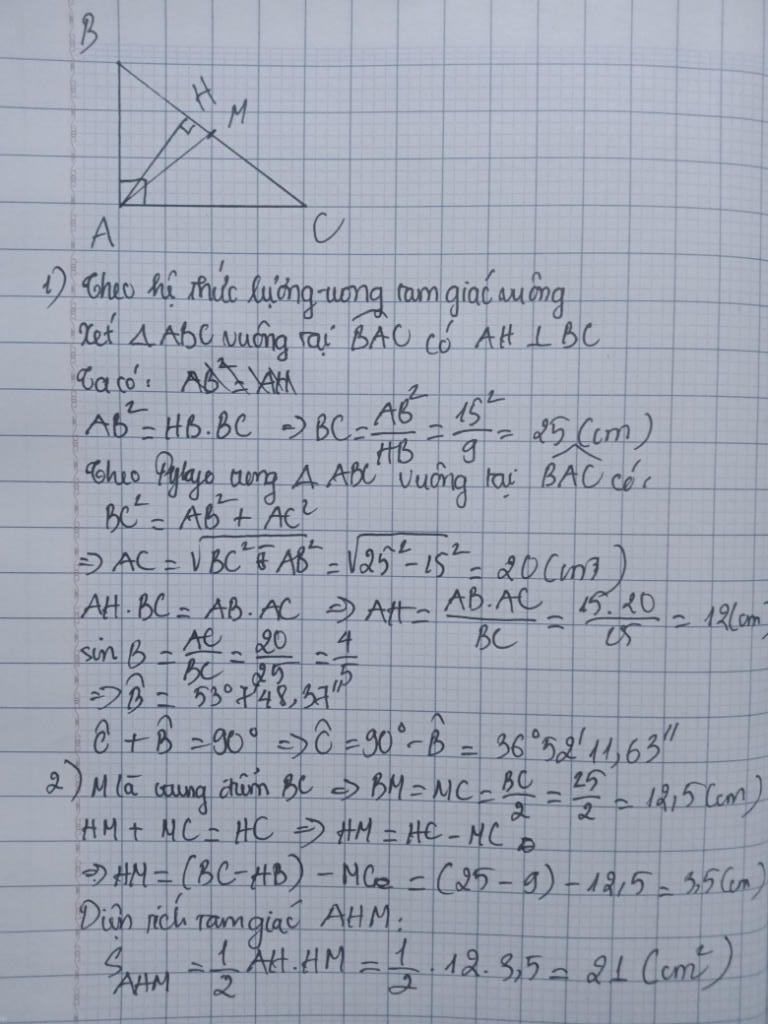 B
H
M
A
C
1) Theo hệ thức lượng trong tam giác vuông
Xét Δ ABC vuông tại BAC có AH ⊥ BC
Ta có: AB² = AH
AB² = HB.BC ⇒ BC = AB²/HB = 15²/9 = 25 (cm)
Theo Pytago trong Δ ABC vuông tại BAC có:
BC² = AB² + AC²
⇒ AC = √(BC² - AB²) = √(25² - 15²) = 20 (cm)
AH.BC = AB.AC ⇒ AH = AB.AC/BC = 15.20/25 = 12 (cm)
sin B = AC/BC = 20/25 = 4/5
⇒ B̂ = 53°7'48,37"
Ĉ + B̂ = 90° ⇒ Ĉ = 90° - B̂ = 36°52'11,63"
2) M là trung điểm BC ⇒ BM = MC = BC/2 = 25/2 = 12,5 (cm)
HM + MC = HC ⇒ HM = HC - MC
⇒ HM = (BC - HB) - MC = (25 - 9) - 12,5 = 3,5 (cm)
Diện tích tam giác AHM:
S_AHM = 1/2 AH.HM = 1/2 . 12 . 3,5 = 21 (cm²)